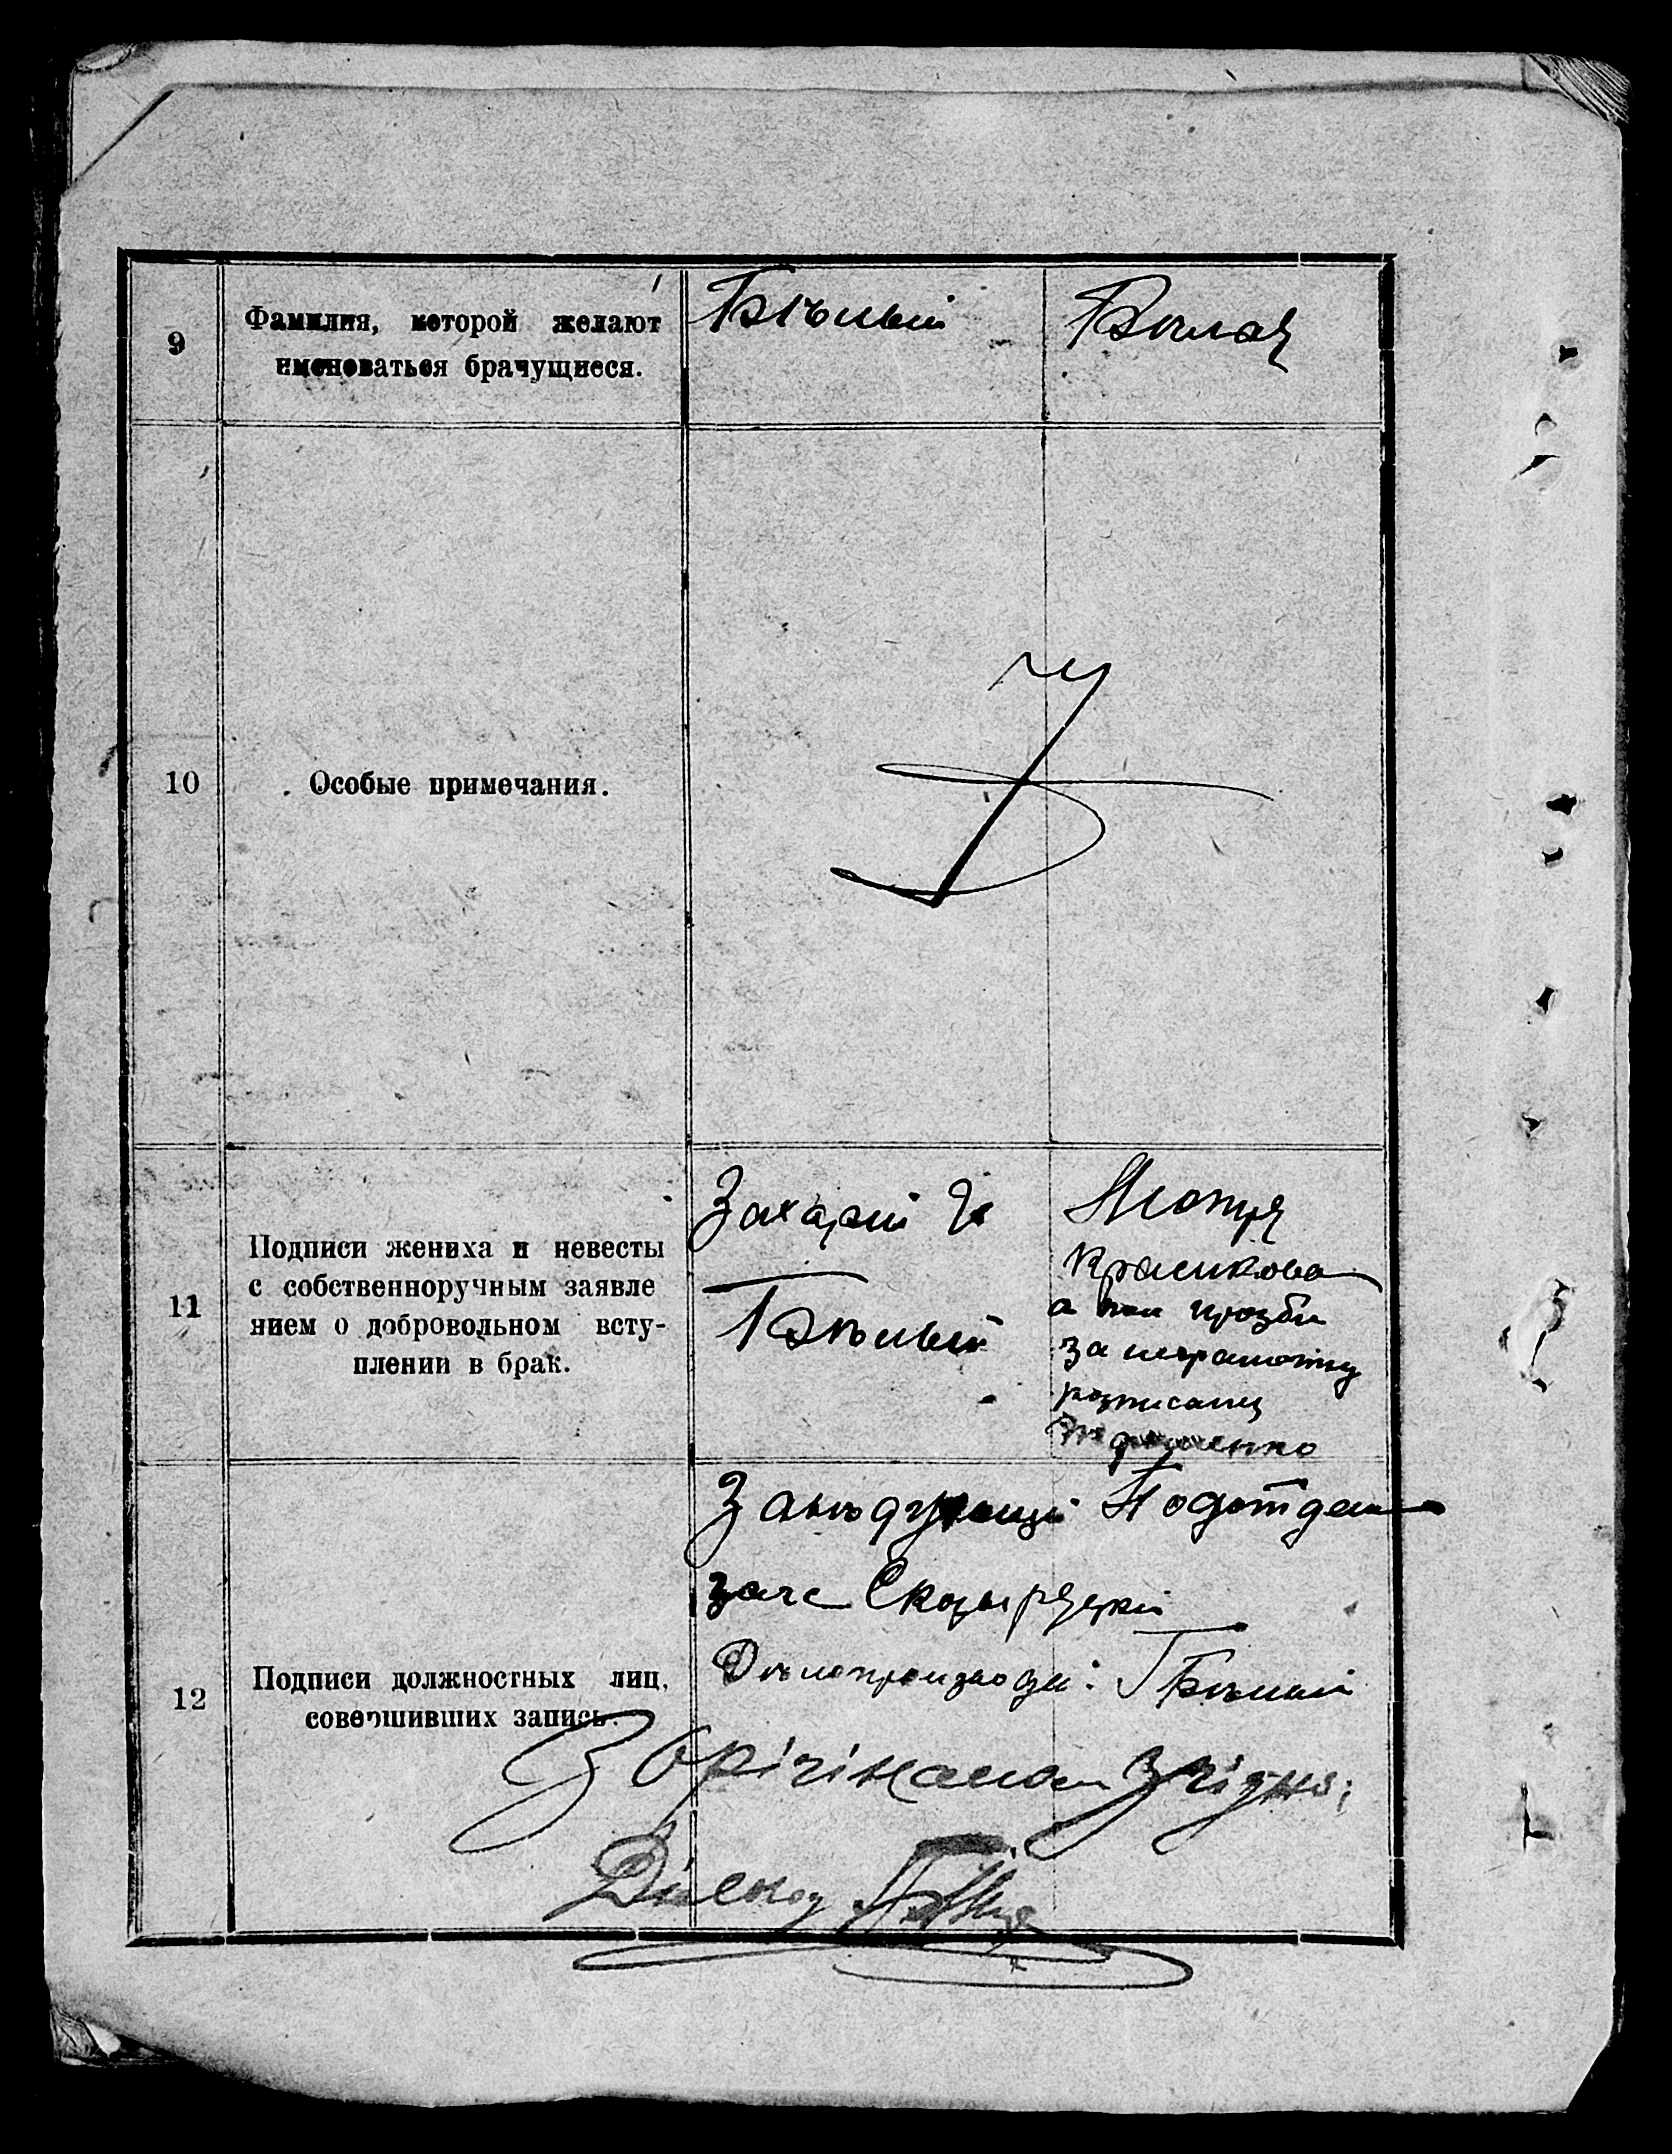 9
Фамилия, которой желают
именоваться брачущиеся.
Бѣлый
Бѣлая
10
Особые примечания.
11
Подписи жениха и невесты
с собственноручным заявле
нием о добровольном всту-
плении в брак.
Захарій
Бѣлый
Мотря
Красикова
а по прозби
за неграмотну
розписавц
12
Подписи должностных лиц,
совершивших запись.
Завѣдующий Подотдел
загс
Дѣлопроизвод: Бѣлый
З орігіналом згідно:
Діловод